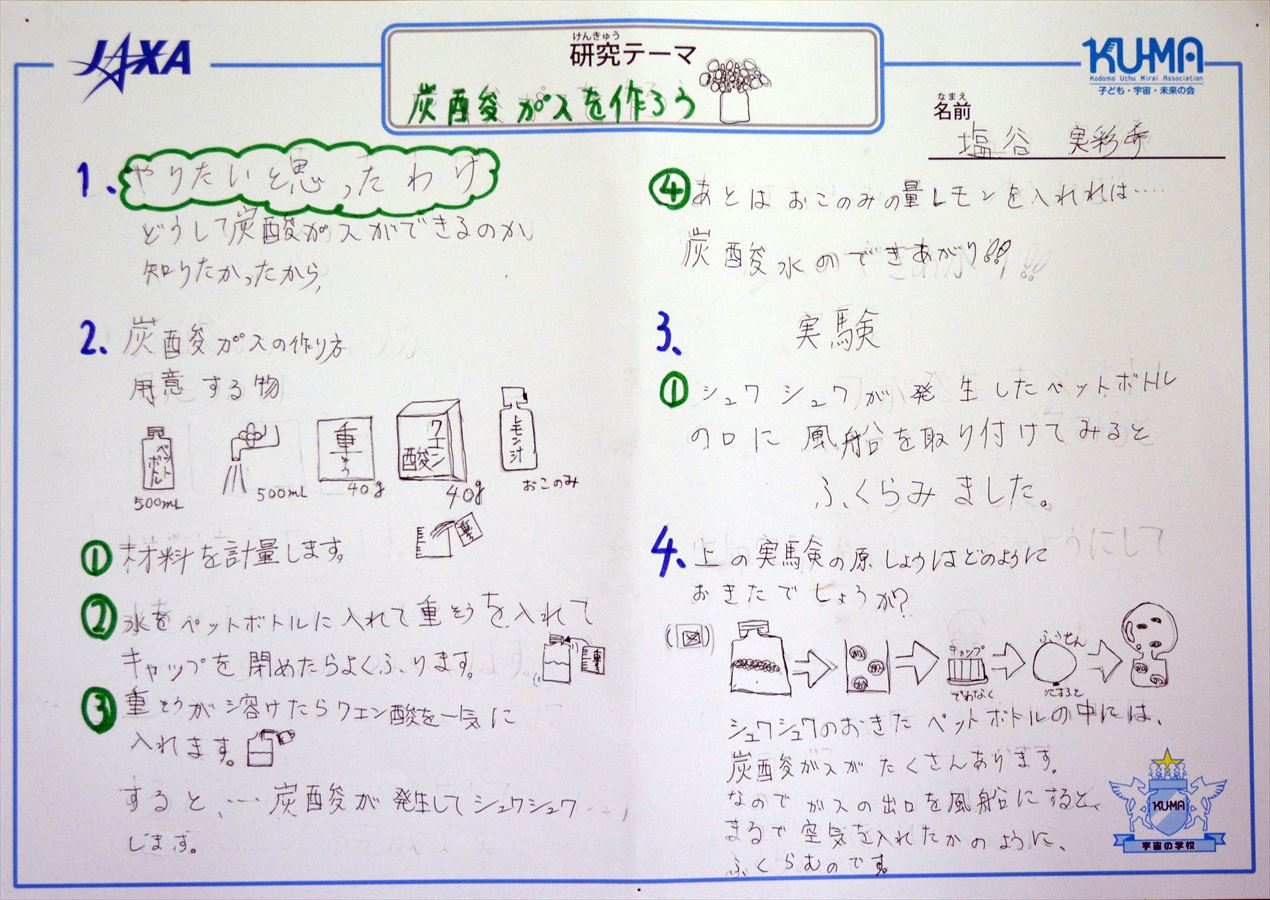 JAXA
けんきゅう
研究テーマ
炭酸ガスを作ろう
KU-MA
Kodomo Uchu Mirai Association
子ども・宇宙・未来の会
なまえ
名前
塩谷 実彩
1、やりたいと思ったわけ
どうして炭酸ガスができるのか、
知りたかったから、
2、炭酸ガスの作り方
用意する物
ペットボトル
500mL
500mL
重そう
40g
クエン酸
40g
レモン汁
おこのみ
① 材料を計量します。
重
② 水をペットボトルに入れて重そうを入れて
キャップを閉めたらよくふります。
重
③ 重そうが溶けたらクエン酸を一気に
入れます。
すると、…炭酸が発生してシュワシュワ
します。
④ あとはおこのみの量レモンを入れれは……
炭酸水のできあがり!!
3、実験
① シュワシュワが発生したペットボトル
の口に風船を取り付けてみると
ふくらみました。
4、上の実験の原しょうはどのように
おきたでしょうか?
(図)
キャップ
でわなく
ふうせん
にすると
シュワシュワのおきたペットボトルの中には、
炭酸ガスがたくさんあります。
なのでガスの出口を風船にすると、
まるで空気を入れたかのように、
ふくらむのです。
KUMA
宇宙の学校